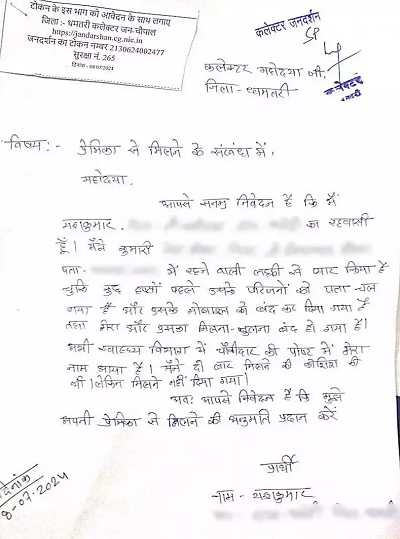 टोकन के इस भाग को आवेदन के साथ लगाए
जिला :- धमतरी कलेक्टर जन-चौपाल
https://jandarshan.cg.nic.in
जनदर्शन का टोकन नम्बर 2130624002477
सुरक्षा नं. 265
दिनांक - 08/07/2024
कलेक्टर जनदर्शन
कलेक्टर महोदया जी,
जिला - धमतरी
कलेक्टर
धमतरी
विषय:- प्रेमिका से मिलने के संबंध में,
महोदया,
आपसे सनम्र निवेदन है कि मैं
यशकुमार का रहवासी
हूँ। मैंने कुमारी
पता- में रहने वाली लड़की से प्यार किया है
चुकि कुछ हफ्तों पहले उसके परिजनों को पता चल
गया है और उसके मोबाइल को बंद कर दिया गया है
तथा मेरा और उसका मिलना-जुलना बंद हो गया है।
अभी स्वास्थ्य विभाग में चौकीदार की पोस्ट में मेरा
नाम आया है। मैंने दो बार मिलने की कोशिश की
थी। लेकिन मिलने नहीं दिया गया।
अतः आपसे निवेदन है कि मुझे
अपनी प्रेमिका से मिलने की अनुमति प्रदान करें
प्रार्थी
नाम - यशकुमार
दिनांक
8-07-2024